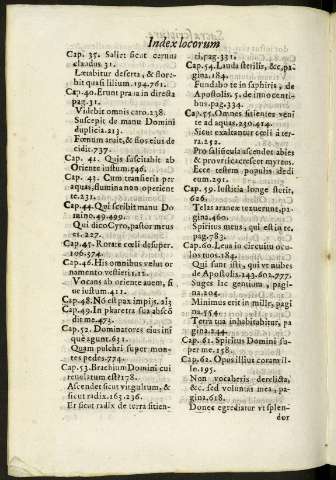 Index locorum
Cap. 35. Saliet sicut ceruus
claudus 31.
Lætabitur deserta, & flore-
bit quasi lilium. 194.761.
Cap. 40. Erunt praua in directa
pag. 31.
Videbit omnis caro. 238.
Suscepit de manu Domini
duplicia. 213.
Fœnum aruit, & flos eius de
cidit. 737.
Cap. 41. Quis suscitabit ab
Oriente iustum. 546.
Cap. 43. Cum transieris per
aquas, flumina non operient
te. 231.
Cap. 44. Qui scribit manu Do
mino. 49.499.
Qui dico Cyro, pastor meus
es. 227.
Cap. 45. Rorate cœli desuper.
106.574.
Cap. 46. His omnibus velut or
namento vestieris. 12.
Vocans ab oriente auem, si
ue iustum. 421.
Cap. 48. Nō est pax impijs. 213
Cap. 49. In pharetra sua abscō
dit me. 473.
Cap. 52. Dominatores eius ini
què agunt. 631.
Quam pulchri super mon-
tes pedes. 774.
Cap. 53. Brachium Domini cui
reuelatum est? 178.
Ascendet sicut virgultum, &
sicut radix. 163.236.
Et sicut radix de terra sitien-
ti, pag. 331.
Cap. 54. Lauda sterilis, &c. pa-
gina. 184.
Fundabo te in saphiris, de
Apostolis. 5. de innocenti-
bus. pag. 334.
Cap. 55. Omnes sitientes veni
te ad aquas. 230.414.
Sicut exaltantur cœli à ter-
ra. 252.
Pro saliuncula ascendet abies
& pro vrtica crescet myrtus.
Ecce testem populis dedi
eum. 291.
Cap. 59. Iustitia longe stetit.
626.
Telas araneæ texuerunt, pa-
gina. 460.
Spiritus meus, qui est in te.
pag. 783.
Cap. 60. Leua in circuitu ocu-
los tuos. 184.
Qui sunt isti, qui vt nubes
de Apostolis. 143.602.777.
Suges lac gentium, pagi-
na. 204.
Minimus erit in mille, pagi
na. 554.
Terra tua inhabitabitur, pa
gina. 244.
Cap. 61. Spiritus Domini su-
per me. 158.
Cap. 62. Opus illius coram il-
lo. 195.
Non vocaberis derelicta,
&c. sed voluntas mea, pa-
gina. 618.
Donec egrediatur vt splen-
dor